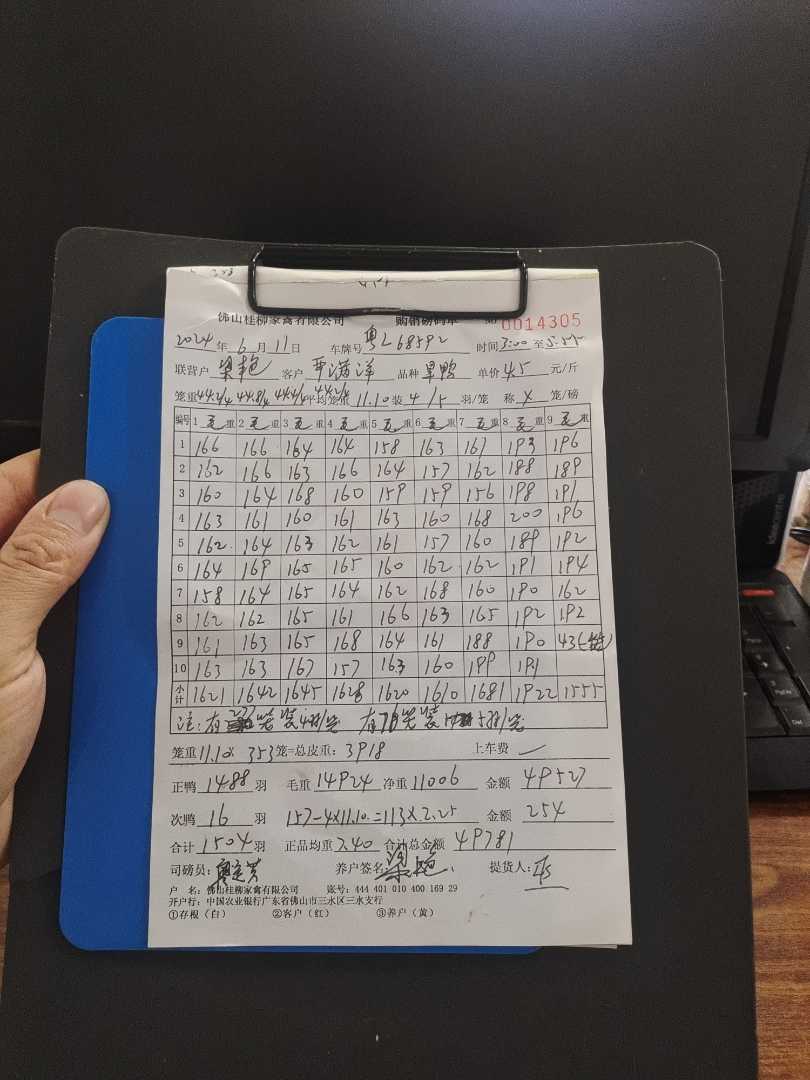 佛山桂柳家禽有限公司 购销磅码单 No 0014305
2024年6月11日 车牌号 粤L68592 时间3:00至5:55
联营户 梁艳 客户 品种 单价 4.5 元/斤
笼重 44.2/4 44.8/4 44.4/4 44.2/4 平均笼重 11.10 装 4/5 羽/笼 称 4 笼/磅
编号 1 毛重 2 毛重 3 毛重 4 毛重 5 毛重 6 毛重 7 毛重 8 毛重 9 毛重
1 166 166 164 164 158 163 161 193 196
2 162 166 163 166 164 157 162 188 189
3 160 164 168 160 159 159 156 198 191
4 163 161 160 161 163 160 168 200 196
5 162 164 163 162 161 157 160 189 192
6 164 169 165 165 160 162 162 191 194
7 158 164 165 164 162 168 160 190 162
8 162 162 165 161 166 163 165 192 192
9 161 163 165 168 164 161 188 190 43
10 163 163 167 157 163 160 199 191
小计 1621 1642 1645 1628 1620 1610 1681 1922 1555
注:有277笼装4羽/笼 有76笼装5羽/笼
笼重11.10× 353笼=总皮重:3918 上车费
正鸭 1488 羽 毛重 14924 净重 11006 金额 49527
次鸭 16 羽 157-4×11.10=113×2.25 金额 254
合计 1504 羽 正品均重 7.40 合计总金额 49781
司磅员: 养户签名: 梁艳 提货人:
户 名:佛山桂柳家禽有限公司 账号:444 401 010 400 169 29
开户行:中国农业银行广东省佛山市三水区三水支行
①存根(白) ②客户(红) ③养户(黄)